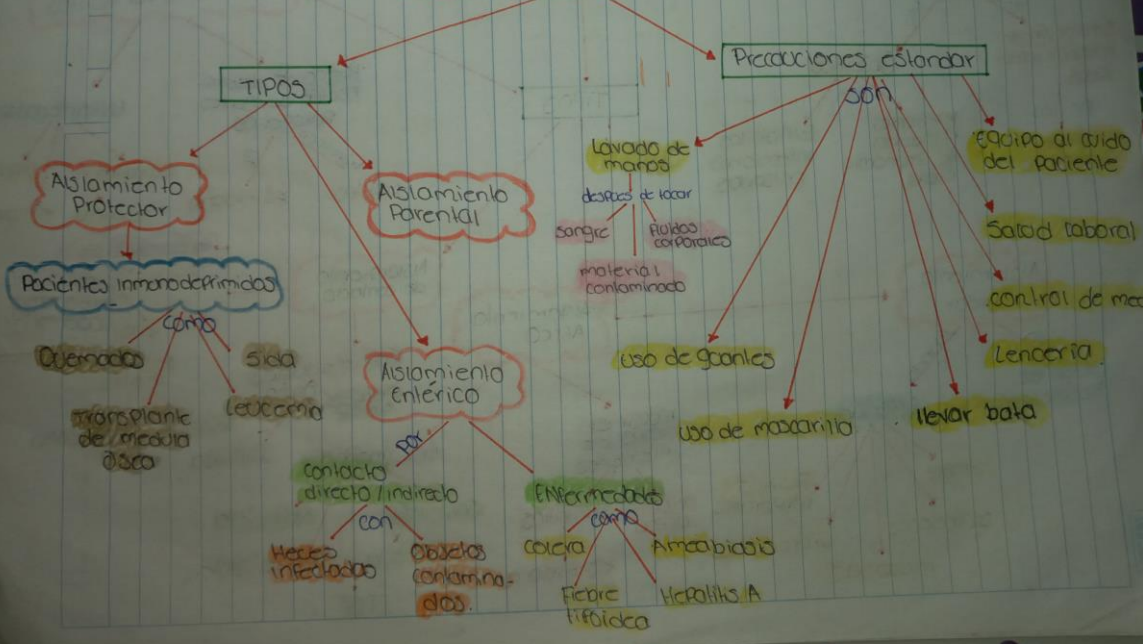 TIPOS
Precauciones estandar
son
Aislamiento
Protector
Pacientes inmunodeprimidos
como
Quemados
Sida
Transplante
de medula
osea
Leucemia
Aislamiento
Parental
Aislamiento
Entérico
por
contacto
directo/indirecto
con
Heces
infectadas
Objetos
contamina-
dos.
Enfermedades
como
Colera
Ameabiasis
Fiebre
tifoidea
Hepatitis A
Lavado de
manos
despues de tocar
sangre
fluidos
corporales
material
contaminado
uso de guantes
uso de mascarilla
llevar bata
Lenceria
control de med
Salud laboral
Equipo al cuido
del paciente